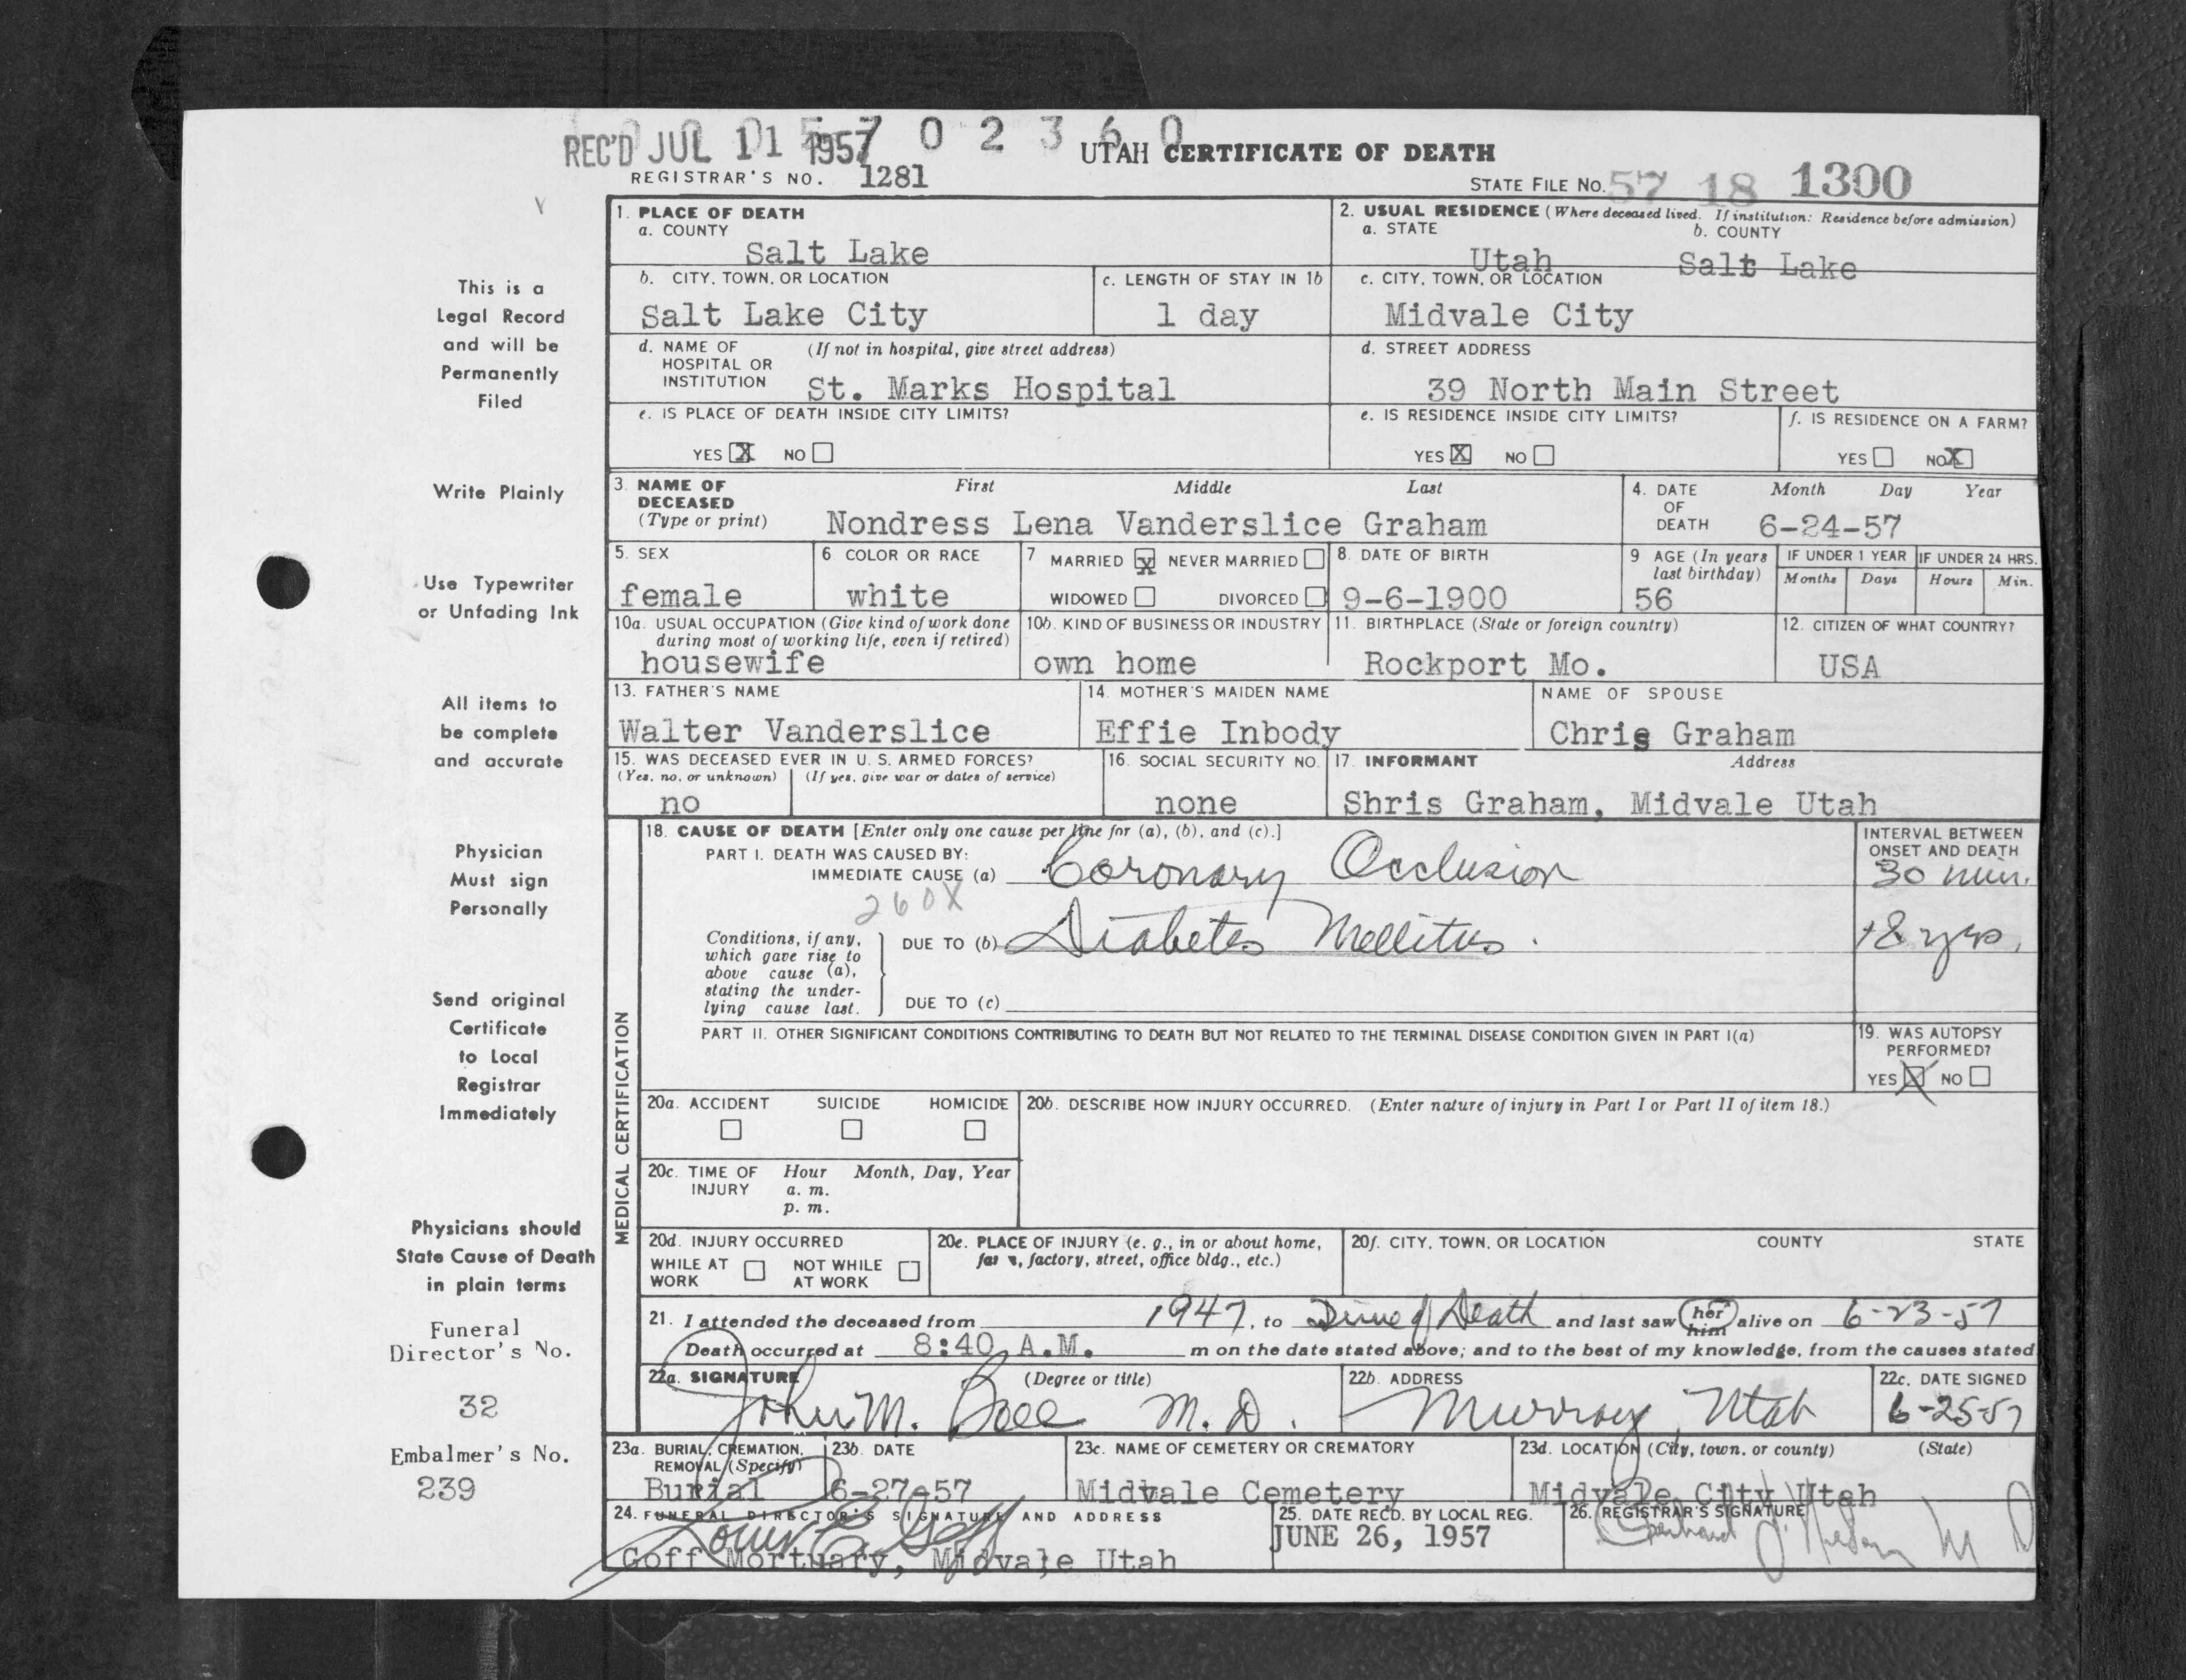 0 0 0 5 7 0 2 3 6 0
REC'D JUL 11 1957 UTAH CERTIFICATE OF DEATH
REGISTRAR'S NO. 1281 STATE FILE NO. 57 18 1300
This is a
Legal Record
and will be
Permanently
Filed
Write Plainly
Use Typewriter
or Unfading Ink
All items to
be complete
and accurate
Physician
Must sign
Personally
Send original
Certificate
to Local
Registrar
Immediately
Physicians should
State Cause of Death
in plain terms
Funeral
Director's No.
32
Embalmer's No.
239
1. PLACE OF DEATH
a. COUNTY
Salt Lake
2. USUAL RESIDENCE (Where deceased lived. If institution: Residence before admission)
a. STATE b. COUNTY
Utah Salt Lake
b. CITY, TOWN, OR LOCATION
Salt Lake City
c. LENGTH OF STAY IN 1b
1 day
c. CITY, TOWN, OR LOCATION
Midvale City
d. NAME OF (If not in hospital, give street address)
HOSPITAL OR
INSTITUTION St. Marks Hospital
d. STREET ADDRESS
39 North Main Street
e. IS PLACE OF DEATH INSIDE CITY LIMITS?
YES X NO
e. IS RESIDENCE INSIDE CITY LIMITS?
YES X NO
f. IS RESIDENCE ON A FARM?
YES NO X
3. NAME OF First Middle Last
DECEASED
(Type or print) Nondress Lena Vanderslice Graham
4. DATE Month Day Year
OF
DEATH 6-24-57
5. SEX
female
6 COLOR OR RACE
white
7 MARRIED X NEVER MARRIED
WIDOWED DIVORCED
8. DATE OF BIRTH
9-6-1900
9 AGE (In years
last birthday)
56
IF UNDER 1 YEAR IF UNDER 24 HRS.
Months Days Hours Min.
10a. USUAL OCCUPATION (Give kind of work done
during most of working life, even if retired)
housewife
10b. KIND OF BUSINESS OR INDUSTRY
own home
11. BIRTHPLACE (State or foreign country)
Rockport Mo.
12. CITIZEN OF WHAT COUNTRY?
USA
13. FATHER'S NAME
Walter Vanderslice
14. MOTHER'S MAIDEN NAME
Effie Inbody
NAME OF SPOUSE
Chris Graham
15. WAS DECEASED EVER IN U. S. ARMED FORCES?
(Yes, no, or unknown) (If yes, give war or dates of service)
no
16. SOCIAL SECURITY NO.
none
17. INFORMANT Address
Shris Graham, Midvale Utah
MEDICAL CERTIFICATION
18. CAUSE OF DEATH [Enter only one cause per line for (a), (b), and (c).]
PART I. DEATH WAS CAUSED BY:
IMMEDIATE CAUSE (a) Coronary Occlusion
260X
Conditions, if any,
which gave rise to
above cause (a),
stating the under-
lying cause last.
DUE TO (b) Diabetes Mellitus.
DUE TO (c)
INTERVAL BETWEEN
ONSET AND DEATH
30 min.
18 yrs.
PART II. OTHER SIGNIFICANT CONDITIONS CONTRIBUTING TO DEATH BUT NOT RELATED TO THE TERMINAL DISEASE CONDITION GIVEN IN PART I(a)
19. WAS AUTOPSY
PERFORMED?
YES X NO
20a. ACCIDENT SUICIDE HOMICIDE
20b. DESCRIBE HOW INJURY OCCURRED. (Enter nature of injury in Part I or Part II of item 18.)
20c. TIME OF Hour Month, Day, Year
INJURY a. m.
p. m.
20d. INJURY OCCURRED
WHILE AT NOT WHILE
WORK AT WORK
20e. PLACE OF INJURY (e. g., in or about home,
farm, factory, street, office bldg., etc.)
20f. CITY, TOWN, OR LOCATION COUNTY STATE
21. I attended the deceased from 1947, to Time of Death and last saw her him alive on 6-23-57
Death occurred at 8:40 A.M. m on the date stated above; and to the best of my knowledge, from the causes stated
22a. SIGNATURE (Degree or title)
John M. M.D.
22b. ADDRESS
Murray, Utah
22c. DATE SIGNED
6-25-57
23a. BURIAL, CREMATION,
REMOVAL (Specify)
Burial
23b. DATE
6-27-57
23c. NAME OF CEMETERY OR CREMATORY
Midvale Cemetery
23d. LOCATION (City, town, or county) (State)
Midvale City Utah
24. FUNERAL DIRECTOR'S SIGNATURE AND ADDRESS
Goff
Goff Mortuary, Midvale Utah
25. DATE RECD. BY LOCAL REG.
JUNE 26, 1957
26. REGISTRAR'S SIGNATURE
M D